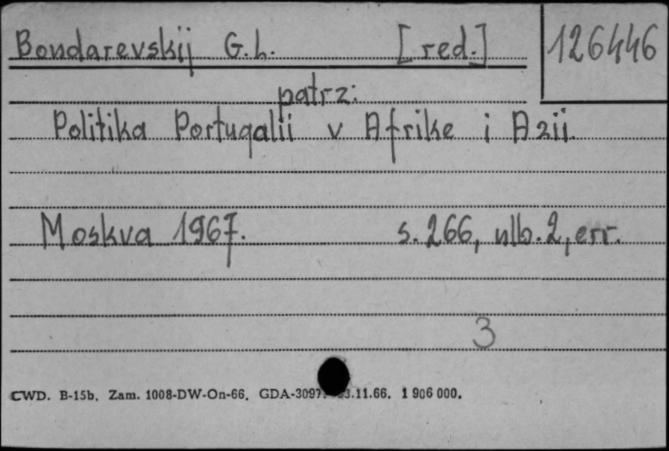 Bondarevskij G.L. [red.] 126446
patrz:
Politika Portugalii v Afrike i Azii.
Moskva 1967. s. 266, nlb. 2, err.
3
CWD. B-15b. Zam. 1008-DW-On-66. .11.66. 1 906 000.